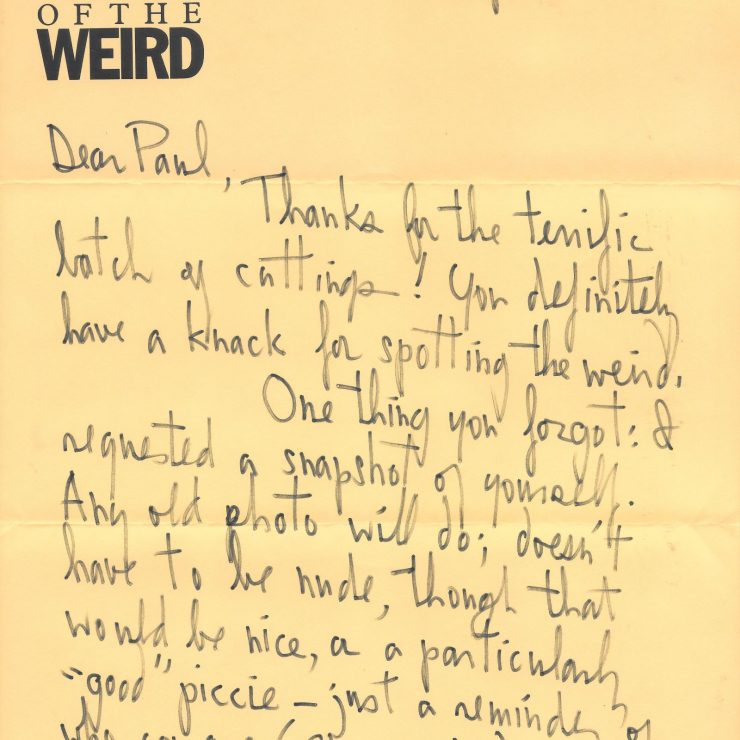 OF THE
WEIRD
Dear Paul,
Thanks for the terrific
batch of cuttings! You definitely
have a knack for spotting the weird.
One thing you forgot: I
requested a snapshot of yourself.
Any old photo will do; doesn't
have to be nude, though that
would be nice, or a particularly
"good" piccie — just a reminder of
who